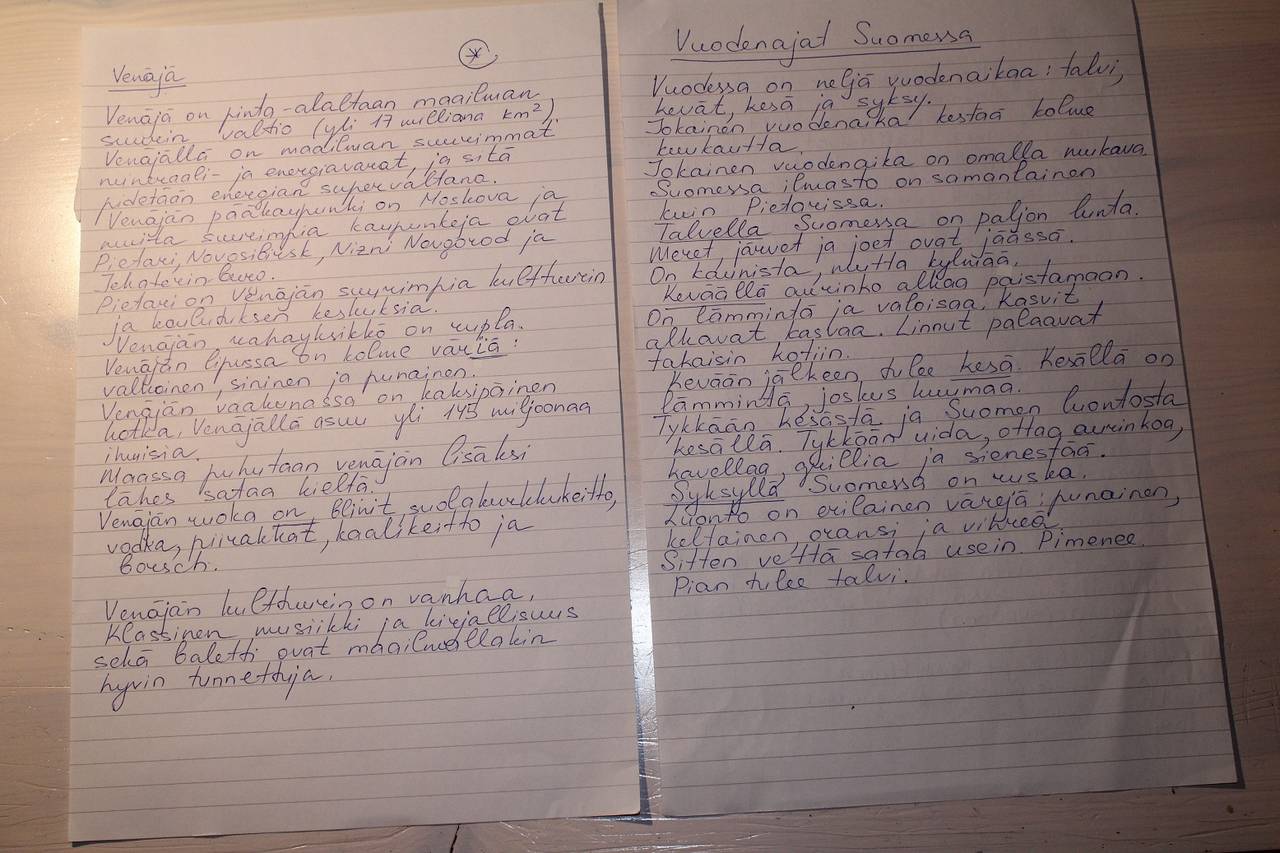 Venäjä
Venäjä on pinta-alaltaan maailman
suurin valtio (yli 17 milliana km²).
Venäjällä on maailman suurimmat
mineraali- ja energiavarat, ja sitä
pidetään energian supervaltana.
Venäjän pääkaupunki on Moskova ja
muita suurimpia kaupunkeja ovat
Pietari, Novosibirsk, Nizni Novgorod ja
Jekaterin burg.
Pietari on Venäjän suurimpia kulttuurin
ja koulutuksen keskuksia.
Venäjän rahayksikkö on rupla.
Venäjän lipussa on kolme väriä:
valkoinen, sininen ja punainen.
Venäjän vaakunassa on kaksipäinen
kotka. Venäjällä asuu yli 145 miljoonaa
ihmisiä.
Maassa puhutaan venäjän lisäksi
lähes sataa kieltä.
Venäjän ruoka on blinit, suolakurkkukeitto,
vodka, piirakkat, kaalikeitto ja
borsch.
Venäjän kulttuurin on vanhaa.
Klassinen musiikki ja kirjallisuus
sekä baletti ovat maailmallakin
hyvin tunnettuja.
Vuodenajat Suomessa
Vuodessa on neljä vuodenaikaa: talvi,
kevät, kesä ja syksy.
Jokainen vuodenaika kestää kolme
kuukautta.
Jokainen vuodenaika on omalla mukava.
Suomessa ilmasto on samanlainen
kuin Pietarissa.
Talvella Suomessa on paljon lunta.
Meret, järvet ja joet ovat jäässä.
On kaunista, mutta kylmää.
Keväällä aurinko alkaa paistamaan.
On lämmintä ja valoisaa. Kasvit
alkavat kasvaa. Linnut palaavat
takaisin kotiin.
Kevään jälkeen tulee kesä. Kesällä on
lämmintä, joskus kuumaa.
Tykkään kesästä ja Suomen luontosta
kesällä. Tykkään uida, ottaa aurinkoa,
kavellaa, grillia ja sienestää.
Syksyllä Suomessa on ruska.
Luonto on erilainen värejä: punainen,
keltainen, oransi ja vihreä.
Sitten vettä sataa usein. Pimenee.
Pian tulee talvi.